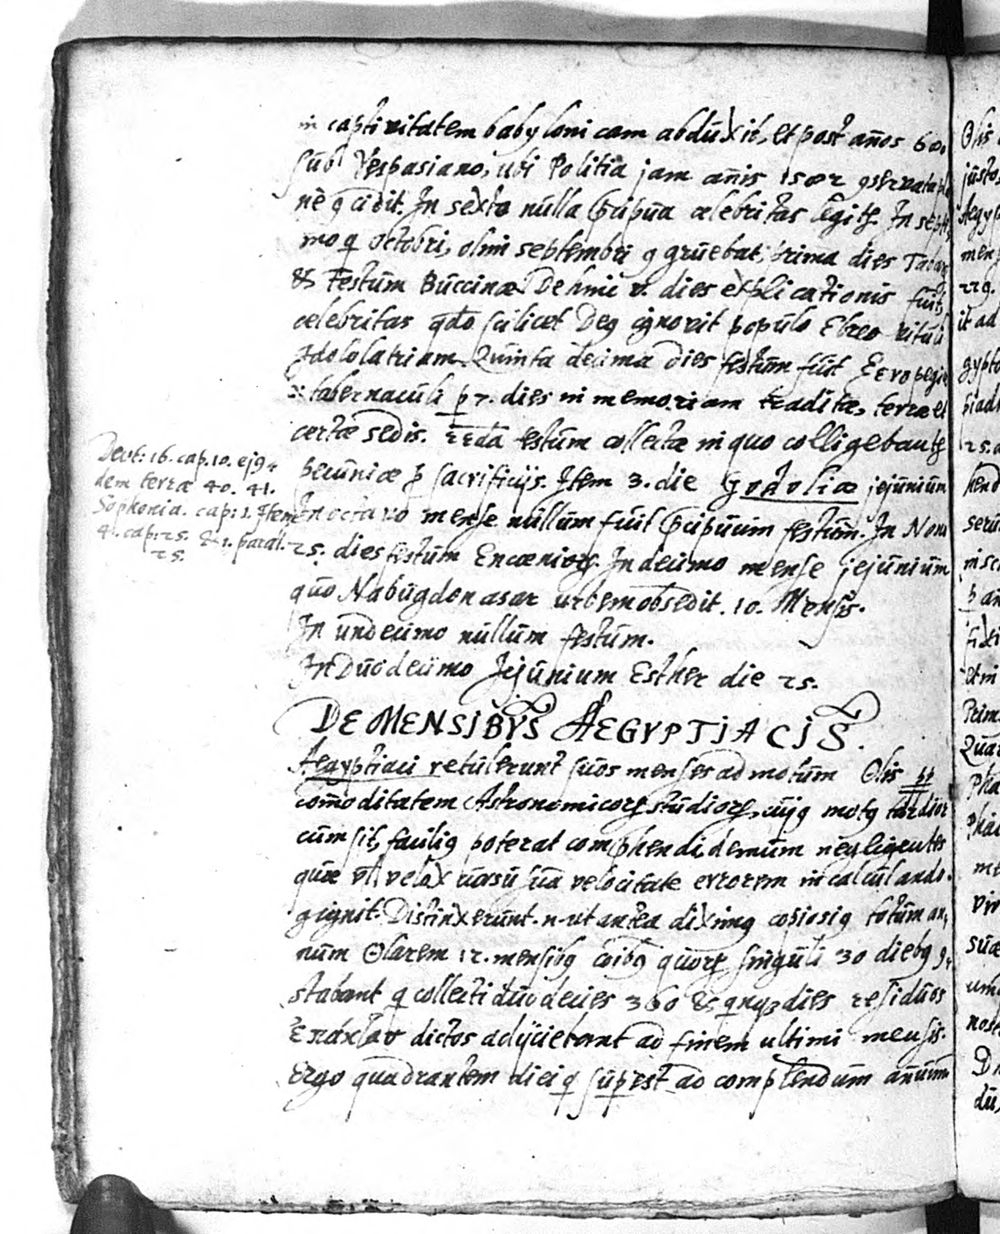 in captivitatem babylonicam abduxit, et post años 600
sub Vespasiano, ubi Politia jam añis 1502 9servata
nè 9cidit. In sexto nulla p̄cipua celebritas legitꝫ. In septi,
mo q Octobri, olim septembri 9gruebat, prima dies
& Festum Buccinæ. Decimi v. dies explicationis fuit,
celebritas qdo scilicet Deꝰ ignovit populo Ebreo vituli
Idololatriam. Quinta decima dies festum fuit
tabernaculi p 7. dies in memoriam traditæ, terræ et
certæ sedis. festum collectæ in quo colligebantꝫ
pecuniæ p sacrificijs. Item 3. die Godoliæ jejunium
In octavo mense nullum fuit p̄cipuum festum. In Nono
25. dies festum Encæniorꝫ. In decimo mense jejunium
quo Nabugdonasar urbem obsedit. 10. Mensis.
In undecimo nullum festum.
In Duodecimo Jejunium Esther die 25.
Deut: 16. cap. 10. ejꝰ
dem terræ 40. 41.
Sophonia. cap: 1. Item
4. cap: 25. & 1. paral.
25.
DE MENSIBVS AEGYPTIACIS.
Aegyptiaci retulerunt suos menses ad motum ☉lis pp
comoditatem Astronomicorꝫ studiorꝫ, cujꝰ motꝰ tardior
cum sit, faciliꝰ poterat comphendi, demum negligentes
quæ velox cursu sua velocitate errorem in calculando
gignit. Distinxerunt .n. ut antea diximꝰ copiosiꝰ totum an,
num ☉larem 12. mensibꝰ quorꝫ singuli 30 diebꝰ 9,
stabant q collecti duodecies 360 & dies residuos
dictos adijciebant ad finem ultimi mensis.
Ergo quadrantem diei q superest ad complendum añuum